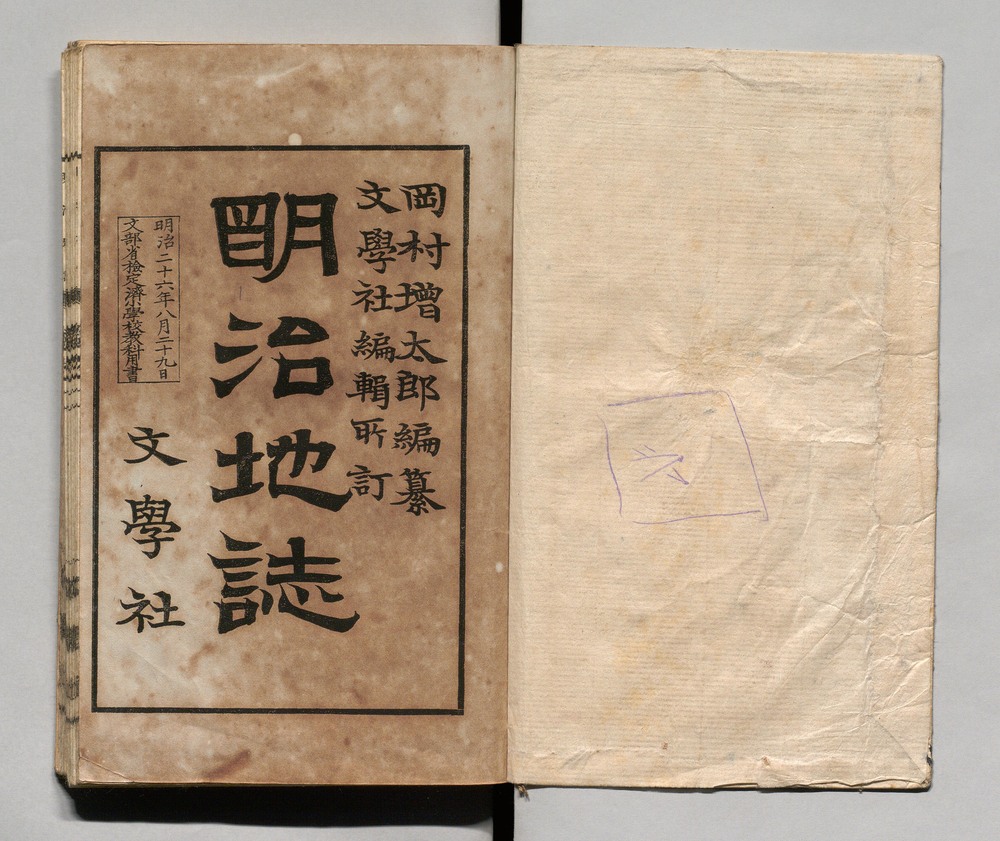 岡村增太郎編纂
文學社編輯所訂
明治地誌
明治二十六年八月二十九日
文部省檢定濟小學校教科用書
文學社